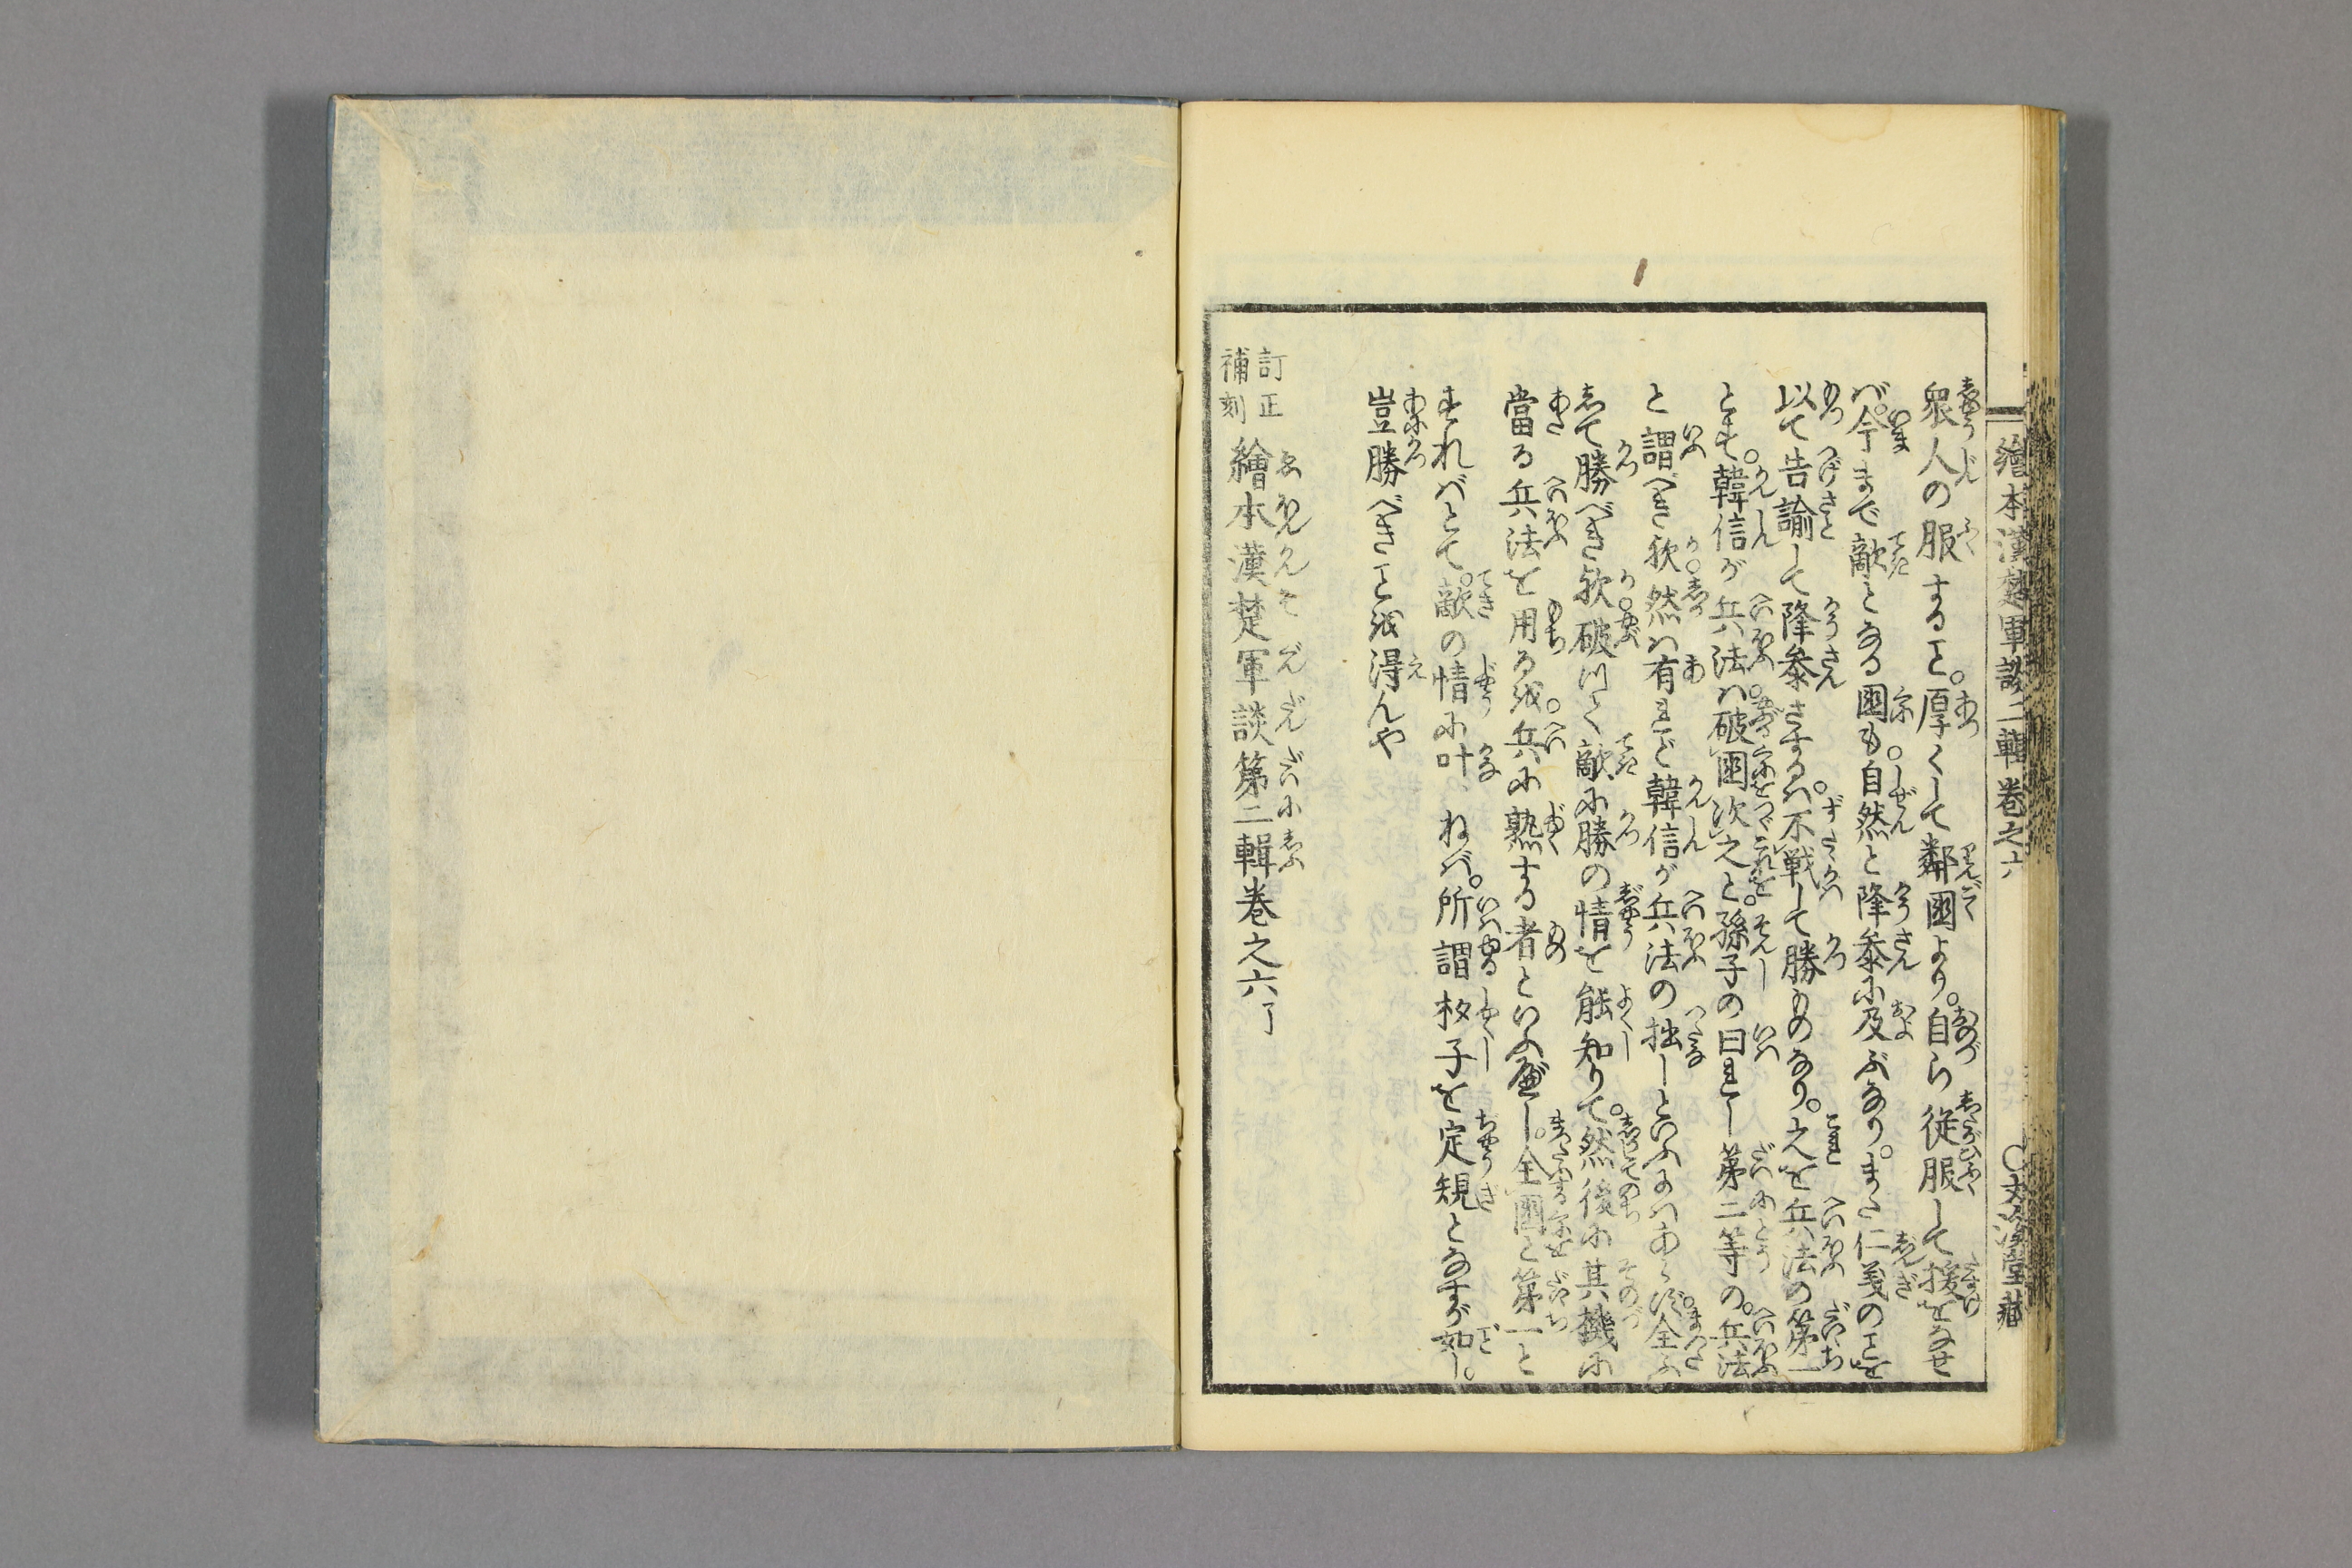 繪本漢楚軍談二輯卷之六 〇文溪堂藏
衆人の服すること。厚くして鄰國より。自ら從服して援をなせ
ば。今まで敵となる國も。自然と降參に及ぶなり。また仁義のことを
以て告諭して降參さするハ。不戰して勝ものなり。之を兵法の第一
とす。韓信が兵法ハ破國次之と。孫子の曰れし第二等の。兵法
と謂べき歟。然ハ有ども韓信が兵法の拙しといふにハあらず。全ふ
して勝べき歟。破りて敵に勝の情を能知りて。然後に其機に
當る兵法を用るを。兵に熟する者といふ歟し。全國を第一と
すればとて。敵の情に叶ねば。所謂杓子を定規となすが如し。
豈勝べきことを得んや
訂正補刻 繪本漢楚軍談第二輯卷之六了
ゑほんかんそぐんだんだいにしふ